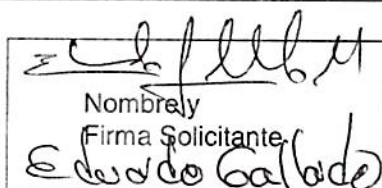 Nombre y
Firma Solicitante
Eduardo Gallardo